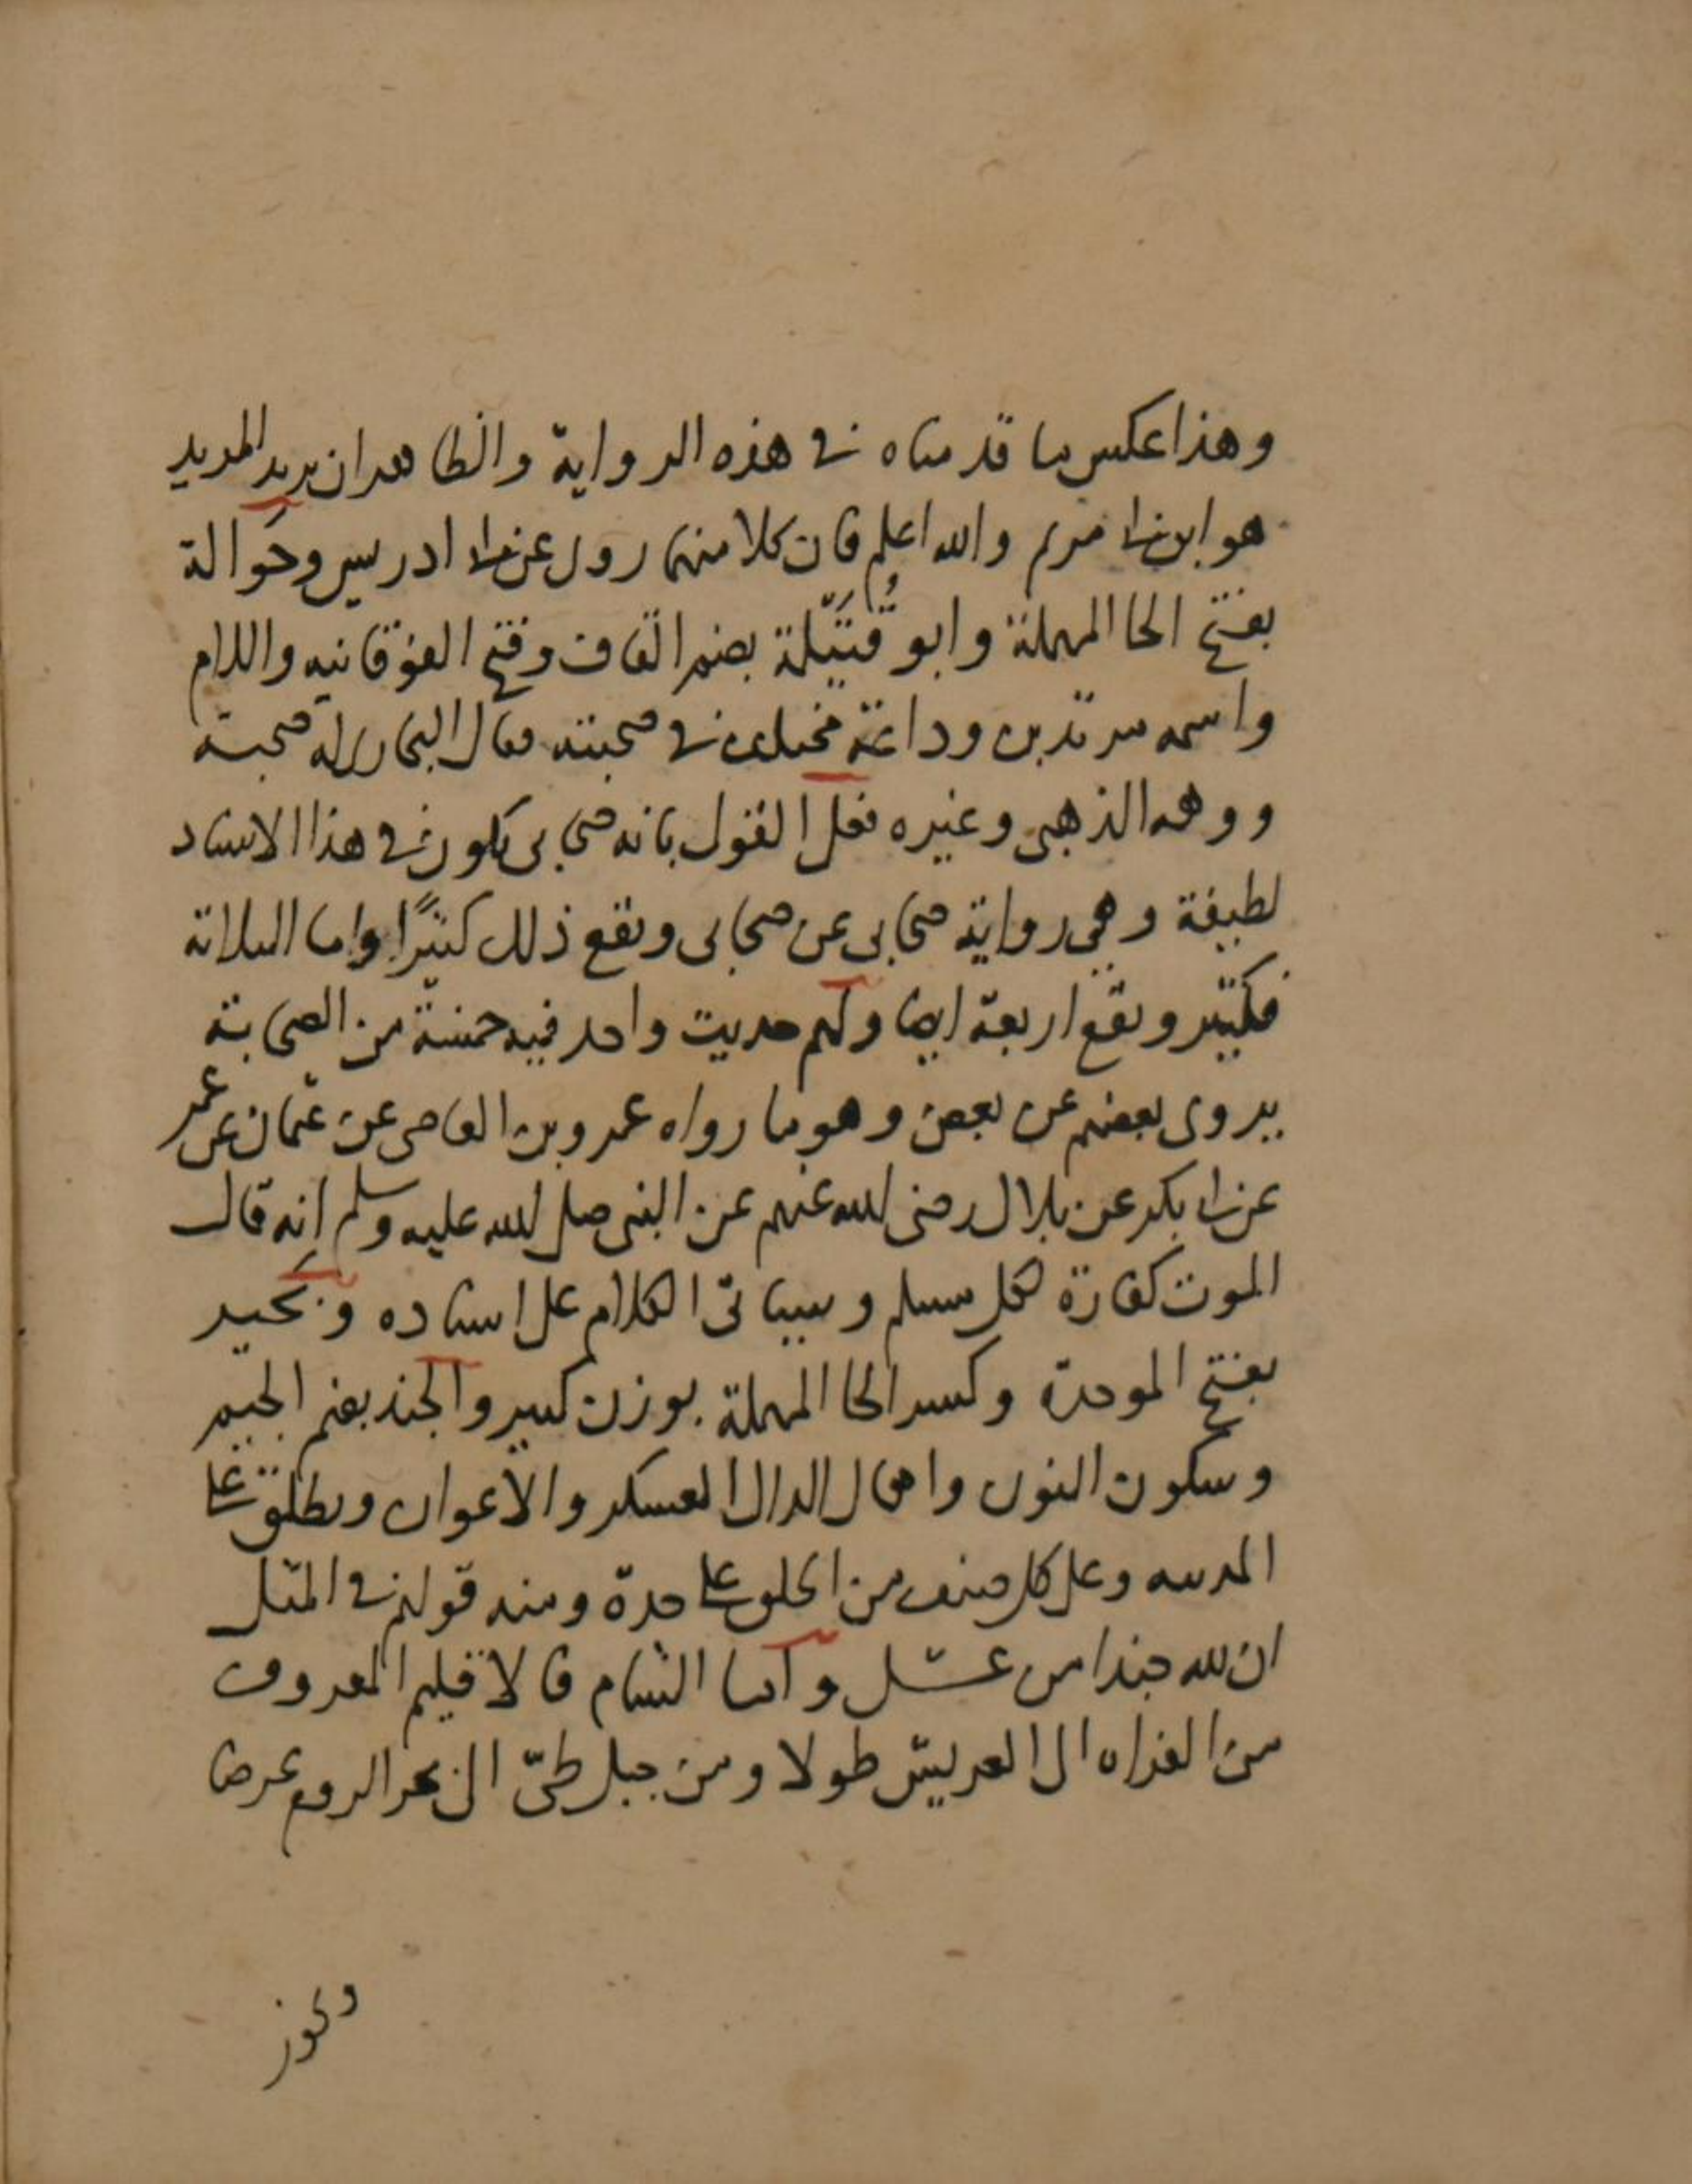 وهذا عكس ما قدمناه في هذه الرواية والظاهر ان يريد المريد
هو ابن ابي مريم والله اعلم فان كلا منهما روى عن ابي ادريس وحَوالة
بفتح الحا المهملة وابو قُتَيّلة بضم القاف وفتح الفوقانيه واللام
واسمه مرثد بن وداعة مختلف في صحبته فقال البخاري له صحبة
ووهمه الذهبي وغيره فعلى القول بانه صحابي يكون في هذا الاسناد
لطيفة وهي رواية صحابي عن صحابي ويقع ذلك كثيرًا واما الثلاثة
فكثير ويقع اربعة ايضا ولهم حديث واحد فيه خمسة من الصحابة
يروى بعضهم عن بعض وهو ما رواه عمرو بن العاصي عن عثمان عن عمر
عن ابي بكر عن بلال رضي الله عنهم عن النبي صلى الله عليه وسلم انه قال
الموت كفارة لكل مسلم وسياتي الكلام على اسناده وبَحير
بفتح الموحدة وكسر الحا المهملة بوزن كبير والجند بضم الجيم
وسكون النون واهمال الدال العسكر والاعوان ويطلق على
المدينه وعلى كل صنف من الخلق على حدة ومنه قولهم في المثل
ان لله جندا من عسل واما الشام فالاقليم المعروف
من الفراه الى العريش طولا ومن جبل طيّ الى بحر الروم عرضا
ويجوز